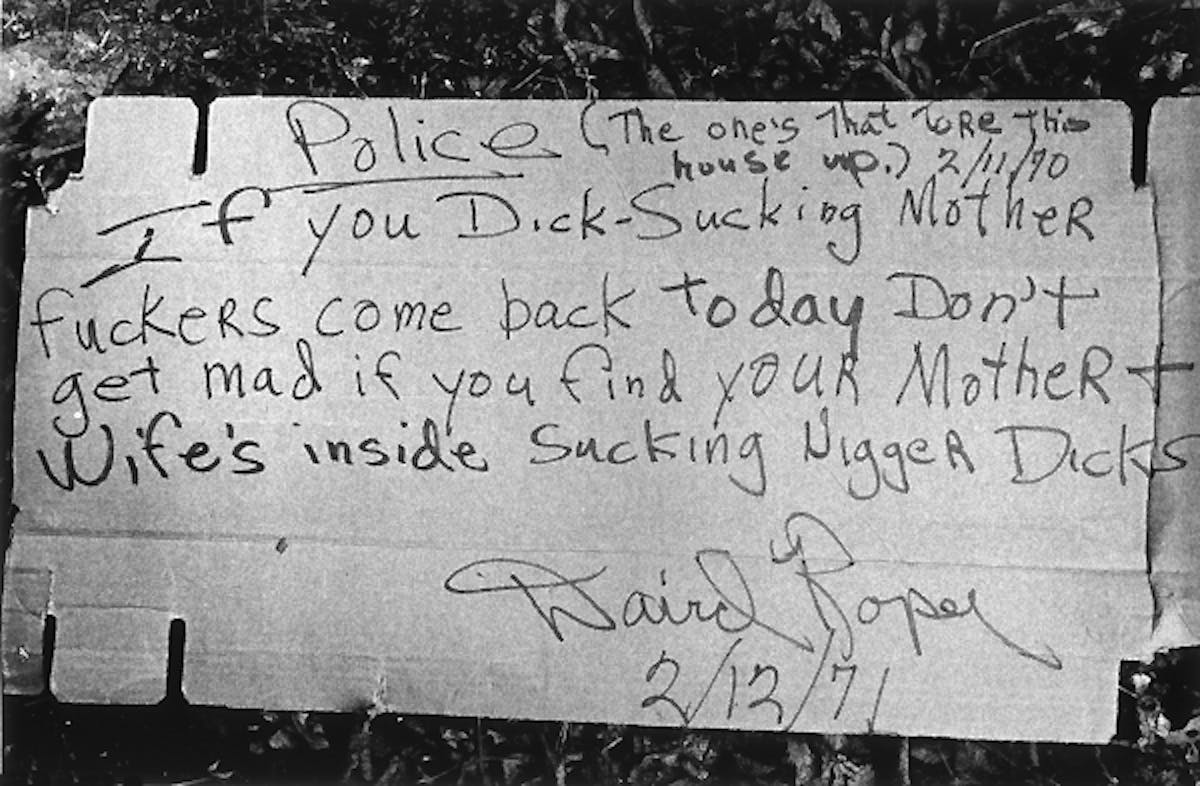 Police (The one's That ToRe This
house up.) 2/11/70
If you Dick-Sucking MotheR
fuckeRS come back today Don't
get mad if you find youR MotheR +
Wife's inside Sucking NiggeR Dicks
Roper
2/12/71